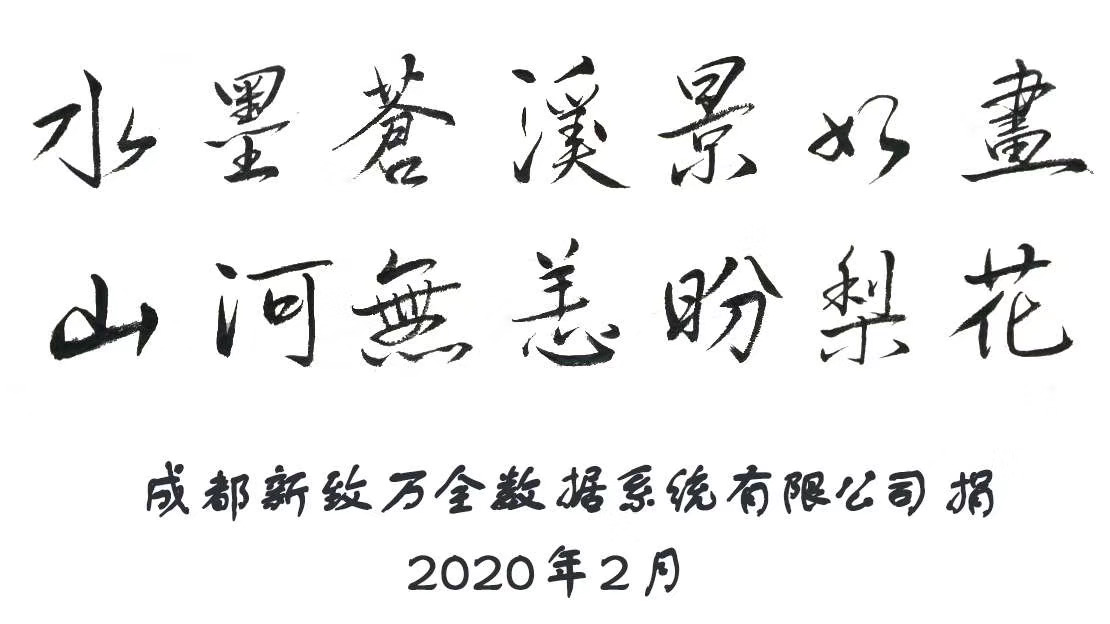 水墨蒼溪景如畫
山河無恙盼梨花
成都新致万全数据系统有限公司 捐
2020年2月